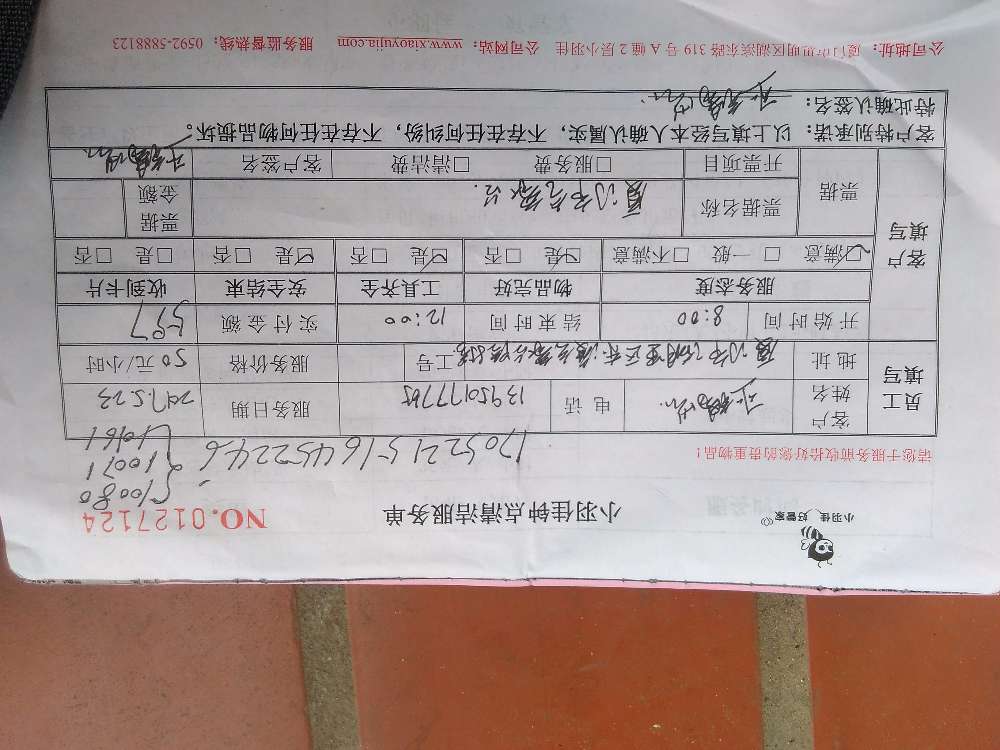 小羽佳 好管家
小羽佳钟点清洁服务单
NO.0127124
请您于服务前收拾好您的贵重物品！
170522151645224.6
10080
10071
10461
员工填写
客户姓名
电话
服务日期 2017.5.23
地址
工号
服务价格 50元/小时
开始时间 8:00 结束时间 12:00 实付金额 597
客户填写
服务态度 物品完好 工具齐全 安全结束 收到卡片
☑满意 □一般 □不满意 ☑是 □否 ☑是 □否 ☑是 □否 □是 □否
票据 票据名称 票据金额
开票项目 □服务费 □清洁费 客户签名
客户特别承诺：以上填写经本人确认属实，不存在任何纠纷，不存在任何物品损坏。
特此确认签名：
公司地址：厦门市思明区湖滨东路319号A幢2层小羽佳 公司网站：www.xiaoyujia.com 服务监督热线：0592-5888123